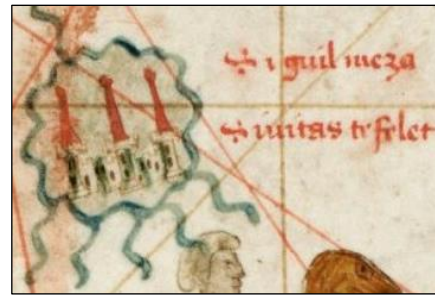 Siguil meza
Siuitas tefelet